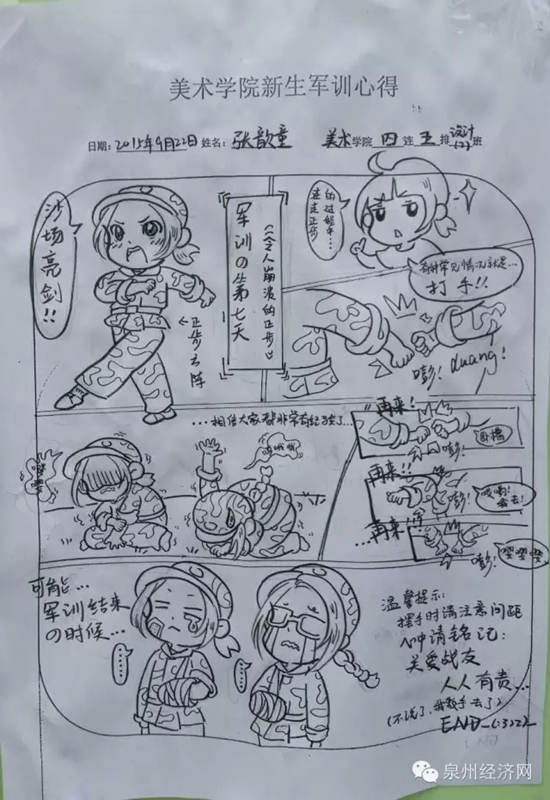 美术学院新生军训心得
日期：2015年9月22日 姓名：张歆童 美术学院 四 连 五 排 设计(2) 班
沙场亮剑!!
军训の第七天
（令人崩溃的正步）
←正步方阵
走正步
打手!!
嘭!
duang!
...相信大家都非常有经验了...
嘤嘤
再来!
嘭!
再来!!
嘭!
...再来!!
嘭!
嘤嘤嘤
可能...
军训结束
の时候...
温馨提示:
摆手时请注意间距
心中请铭记:
关爱战友
人人有责...
(不说了,我敷手去了)
END
泉州经济网